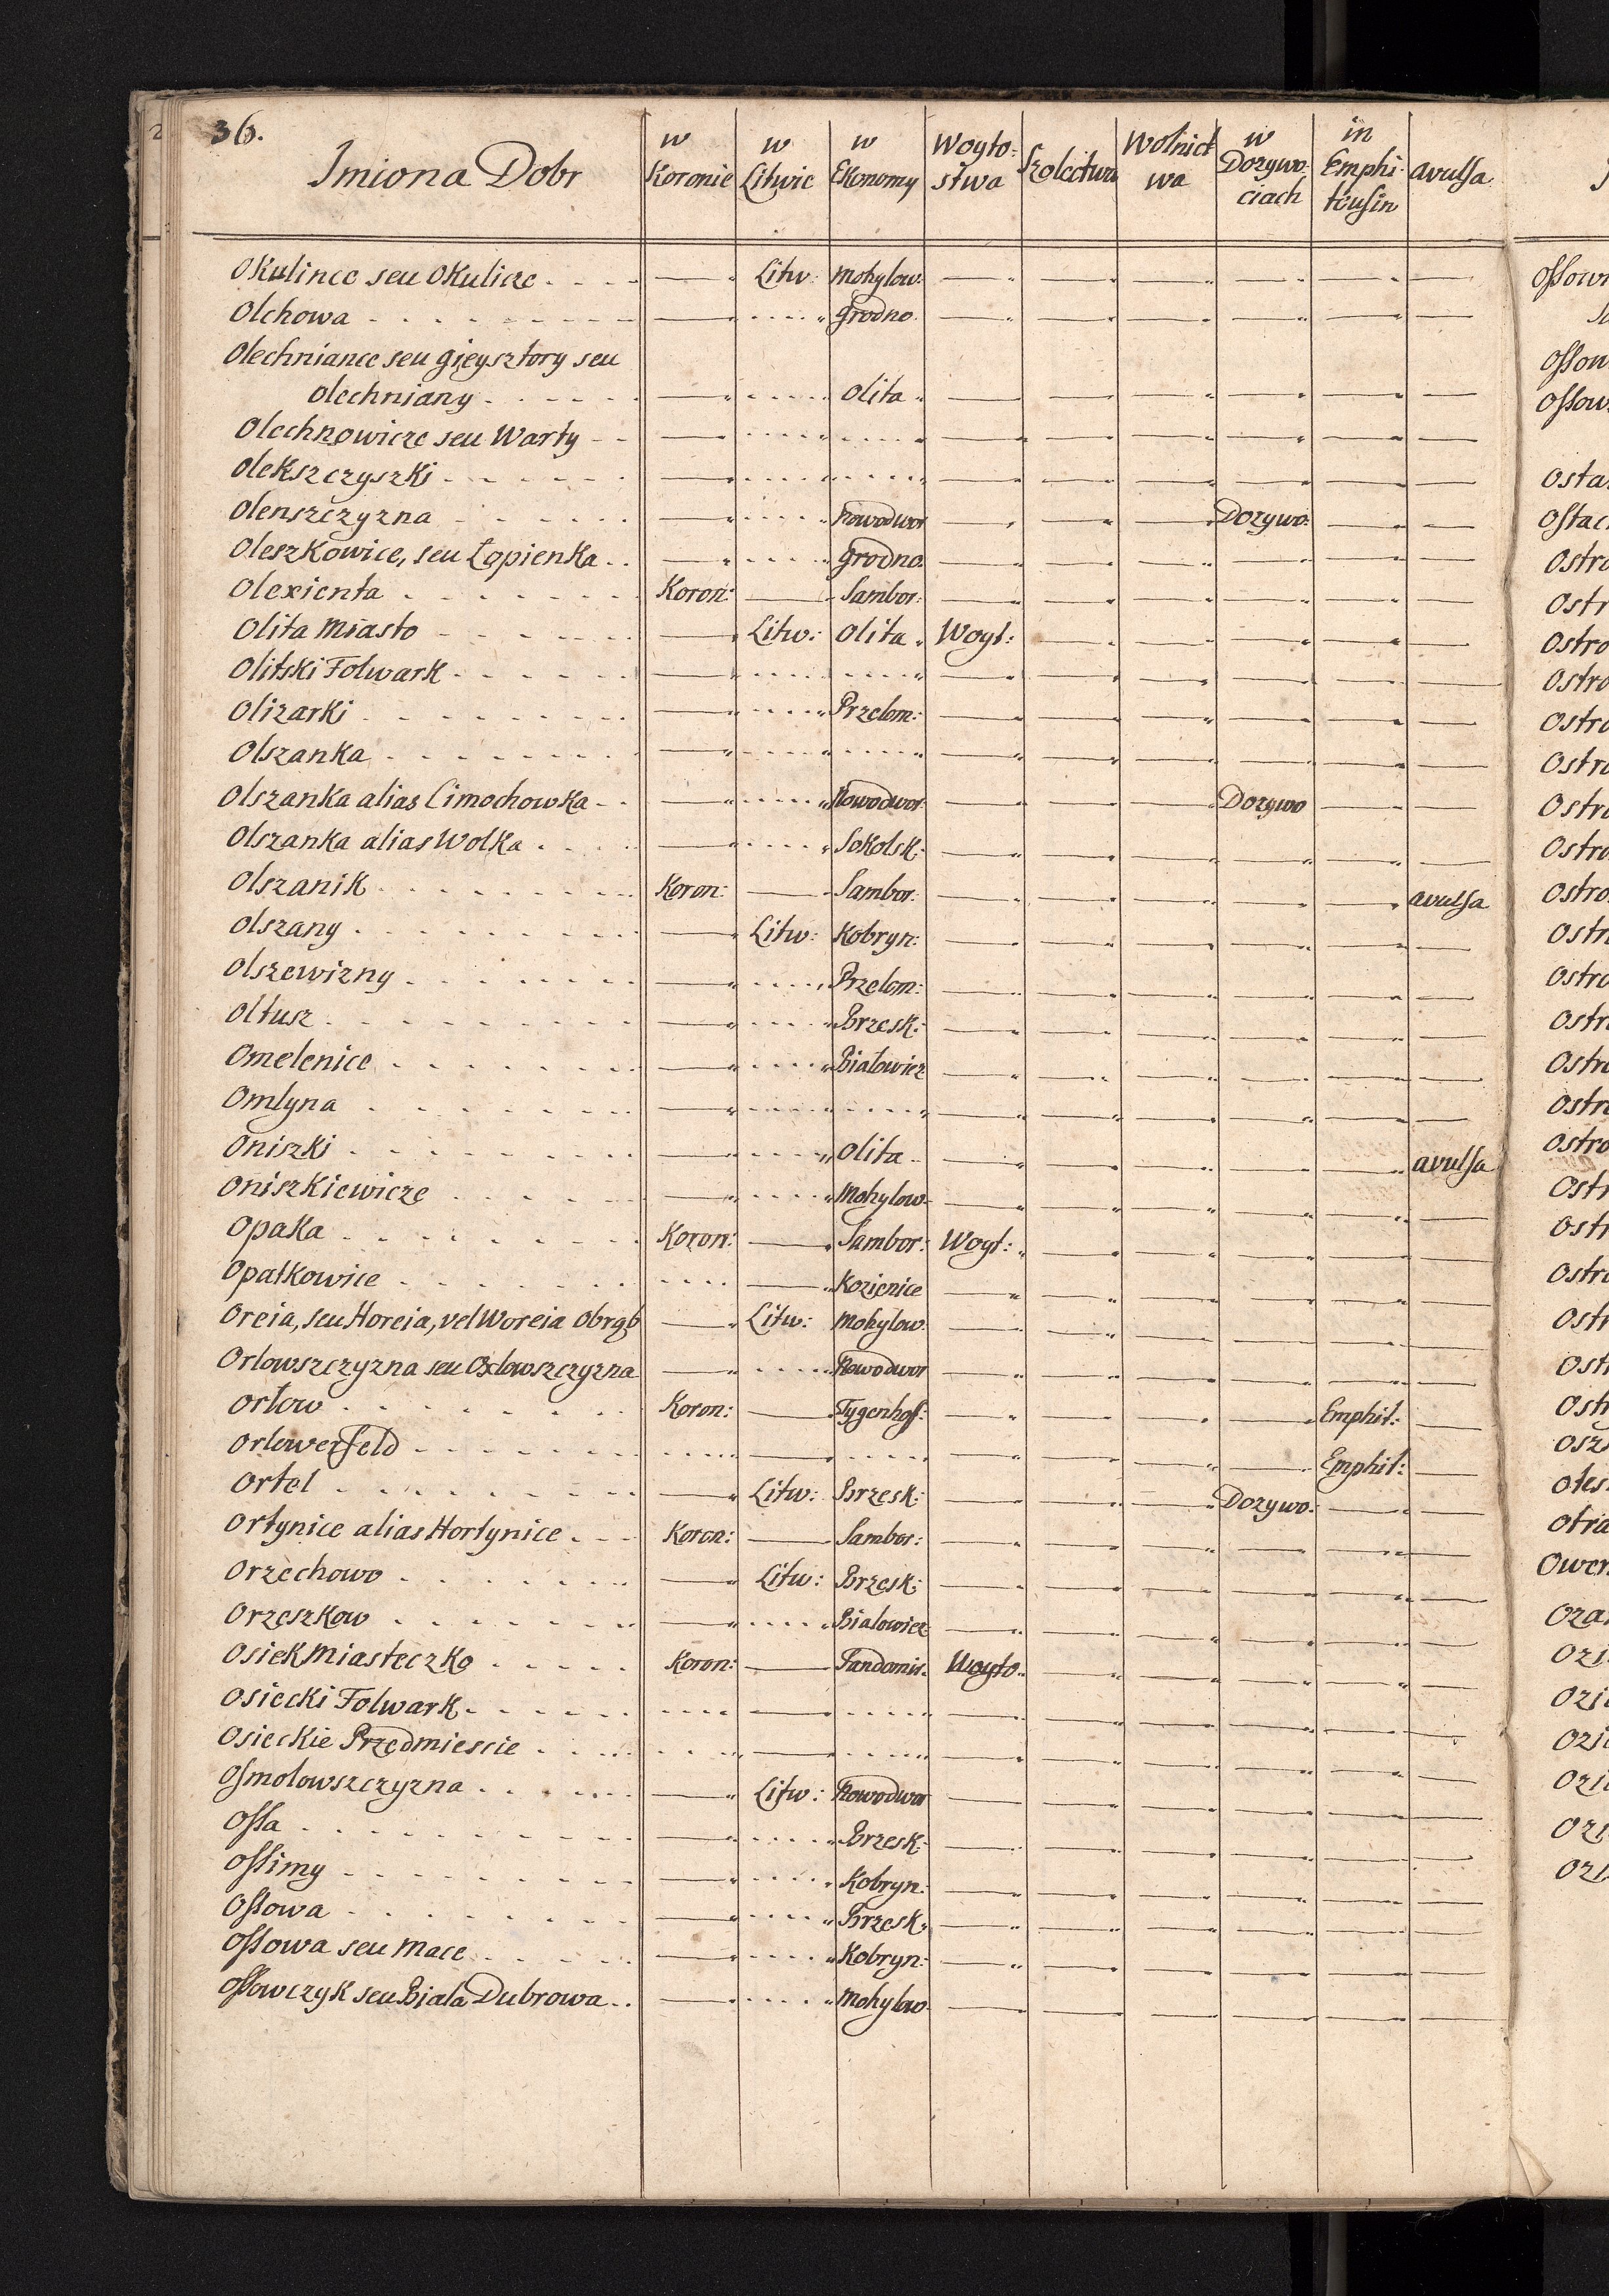 36.
Imiona Dobr | w Koronie | w Litwie | w Ekonomy | Woyto=stwa | Szolectwa | Wolnict wa | w Dozywo ciach | in Emphi teusin | avulsa
Okulince seu Okulicze . . . . | — | Litw: | Mohylow: | — | — | — | — | — | —
Olchowa . . . . | — | . . . . | Grodno. | — | — | — | — | — | —
Olechniance seu Gieysztory seu
Olechniany . . . . | — | . . . . | Olita | — | — | — | — | — | —
Olechnowicze seu Warty . . | — | . . . . | . . . . | — | — | — | — | — | —
Olekszczyszki . . . . | — | . . . . | . . . . | — | — | — | — | — | —
Olenszczyzna . . . . | — | . . . . | Nowodwor | — | — | — | Dozywo: | — | —
Oleszkowice, seu Łapienka . . | — | . . . . | Grodno. | — | — | — | — | — | —
Olexienta . . . . | Koron: | — | Sambor: | — | — | — | — | — | —
Olita Miasto . . . . | — | Litw: | Olita | Woyt: | — | — | — | — | —
Olitski Folwark . . . . | — | . . . . | . . . . | — | — | — | — | — | —
Olizarki . . . . | — | . . . . | Przelom: | — | — | — | — | — | —
Olszanka . . . . | — | . . . . | . . . . | — | — | — | — | — | —
Olszanka alias Cimochowka . . | — | . . . . | Nowodwor | — | — | — | Dozywo | — | —
Olszanka alias Wolka . . . . | — | . . . . | Sokolsk: | — | — | — | — | — | —
Olszanik . . . . | Koron: | — | Sambor: | — | — | — | — | — | avulsa
Olszany . . . . | — | Litw: | Kobryn: | — | — | — | — | — | —
Olszewizny . . . . | — | . . . . | Przelom: | — | — | — | — | — | —
Oltusz . . . . | — | . . . . | Brzesk: | — | — | — | — | — | —
Omelenice . . . . | — | . . . . | Bialowiez | — | — | — | — | — | —
Omlyna . . . . | — | . . . . | . . . . | — | — | — | — | — | —
Oniszki . . . . | — | . . . . | Olita | — | — | — | — | — | avulsa
Oniszkiewicze . . . . | — | . . . . | Mohylow | — | — | — | — | — | —
Opaka . . . . | Koron: | — | Sambor: | Woyt: | — | — | — | — | —
Opatkowice . . . . | . . . . | — | Kozienice | — | — | — | — | — | —
Oreia, seu Horeia, vel Woreia Obrąb | — | Litw: | Mohylow | — | — | — | — | — | —
Orlowszczyzna seu Oslowszczyzna | — | . . . . | Nowodwor | — | — | — | — | — | —
Orlow . . . . | Koron: | — | Tygenhoff: | — | — | — | — | Emphit: | —
Orlowerfeld . . . . | . . . . | — | . . . . | — | — | — | — | Emphit: | —
Ortel . . . . | — | Litw: | Brzesk: | — | — | — | Dozywo: | — | —
Ortynice alias Hortynice . . . | Koron: | — | Sambor: | — | — | — | — | — | —
Orzechowo . . . . | — | Litw: | Brzesk: | — | — | — | — | — | —
Orzeszkow . . . . | — | . . . . | Bialowiez | — | — | — | — | — | —
Osiek Miasteczko . . . . | Koron: | — | Sandomir: | Woyto | — | — | — | — | —
Osiecki Folwark . . . . | . . . . | — | . . . . | — | — | — | — | — | —
Osieckie Przedmiescie . . . . | . . . . | — | . . . . | — | — | — | — | — | —
Osmolowszczyzna . . . . | — | Litw: | Nowodwor | — | — | — | — | — | —
Ossa . . . . | — | . . . . | Brzesk: | — | — | — | — | — | —
Ossimy . . . . | — | . . . . | Kobryn: | — | — | — | — | — | —
Ossowa . . . . | — | . . . . | Brzesk: | — | — | — | — | — | —
Ossowa seu Mace . . . . | — | . . . . | Kobryn: | — | — | — | — | — | —
Ossowczyk seu Biala Dubrowa . . | — | . . . . | Mohylow | — | — | — | — | — | —